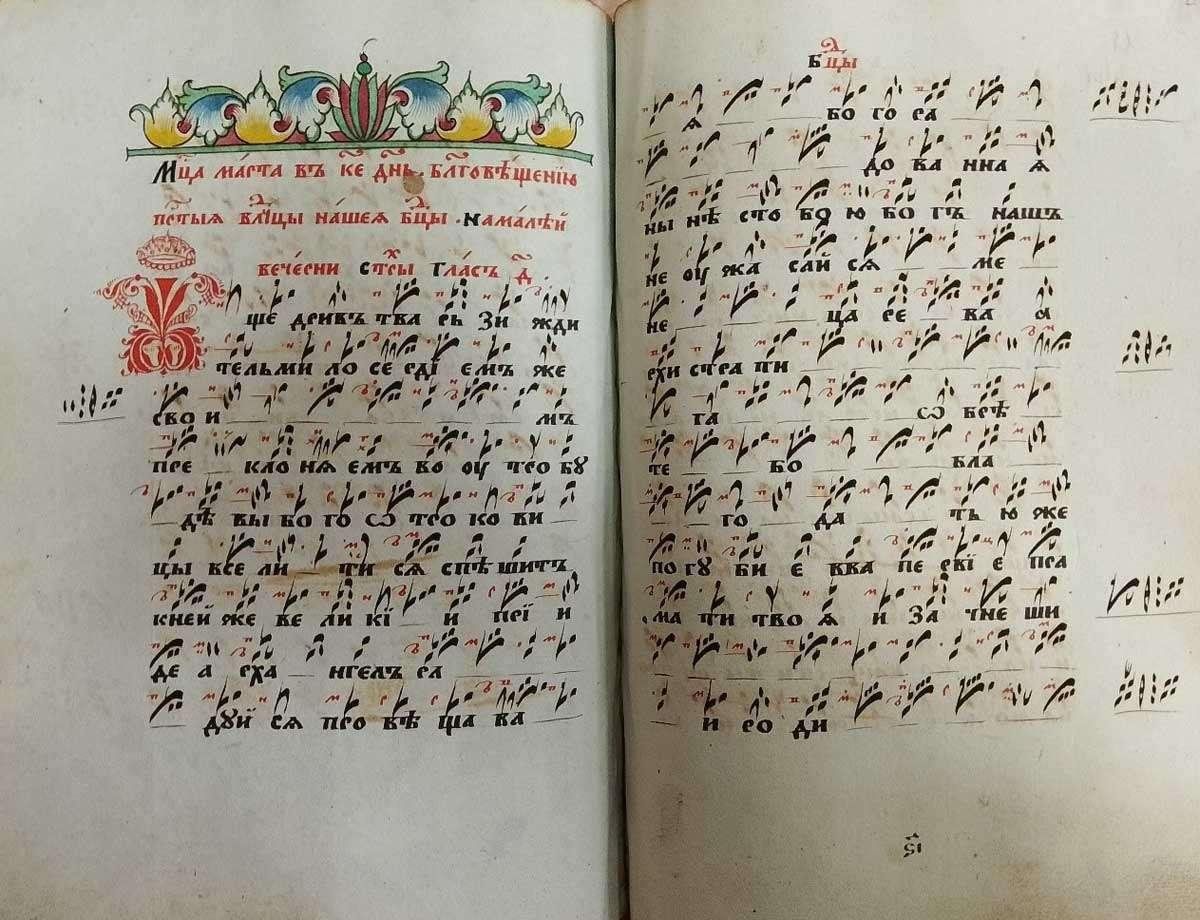 Мцⷭ҇а ма́рта въ к҃е дн҃ь. Бл҃говѣ́щенїю
прⷭ҇тыѧ влⷣцы на́шеѧ бⷣцы · на ма́лѣй
вече́рни стⷯры гла́съ д҃
ще дривъ тва рь зи жди
тельми ло се рдї емъ же
сво и мъ
пре кло нѧ емъ во оу тро бу
дѣ вы бо го ѿ тро ко ви
цы все ли ти сѧ спѣ шитъ
кней же ве ли кї и прї и
де а рха нгелъ ра
дуй сѧ про вѣ ща ва
бⷣцы
ѧ бо го ра
до ва нна ѧ
ны нѣ сто бо ю бо гъ нашъ
не оу жа сай сѧ ме
не ца ре ва а
рхи стра ти
га ѡ брѣ
те бо бла
го да ть ю же
по гу би е вва пе рвї е пра
ма ти тво ѧ и за чне ши
и ро ди
ѕ҃і